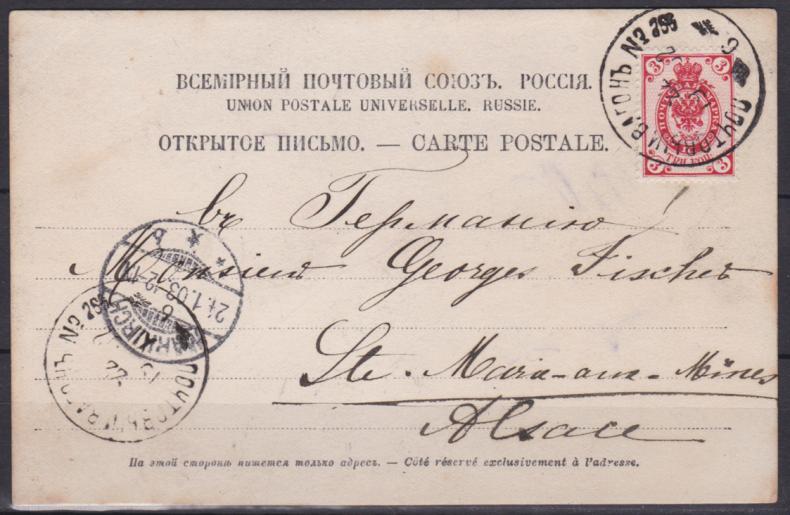 ВСЕМІРНЫЙ ПОЧТОВЫЙ СОЮЗЪ. РОССІЯ.
UNION POSTALE UNIVERSELLE. RUSSIE.
ОТКРЫТОЕ ПИСЬМО. — CARTE POSTALE.
ПОЧТОВЫЙ ВАГОНЪ № 295
3 3
3 3
въ Германію!
Monsieur Georges Fischer
Ste. Marie-aux-Mines
Alsace
MARKIRCH
21.1.03
ПОЧТОВЫЙ ВАГОНЪ № 295
На этой сторонѣ пишется только адресъ. — Côté réservé exclusivement à l'adresse.